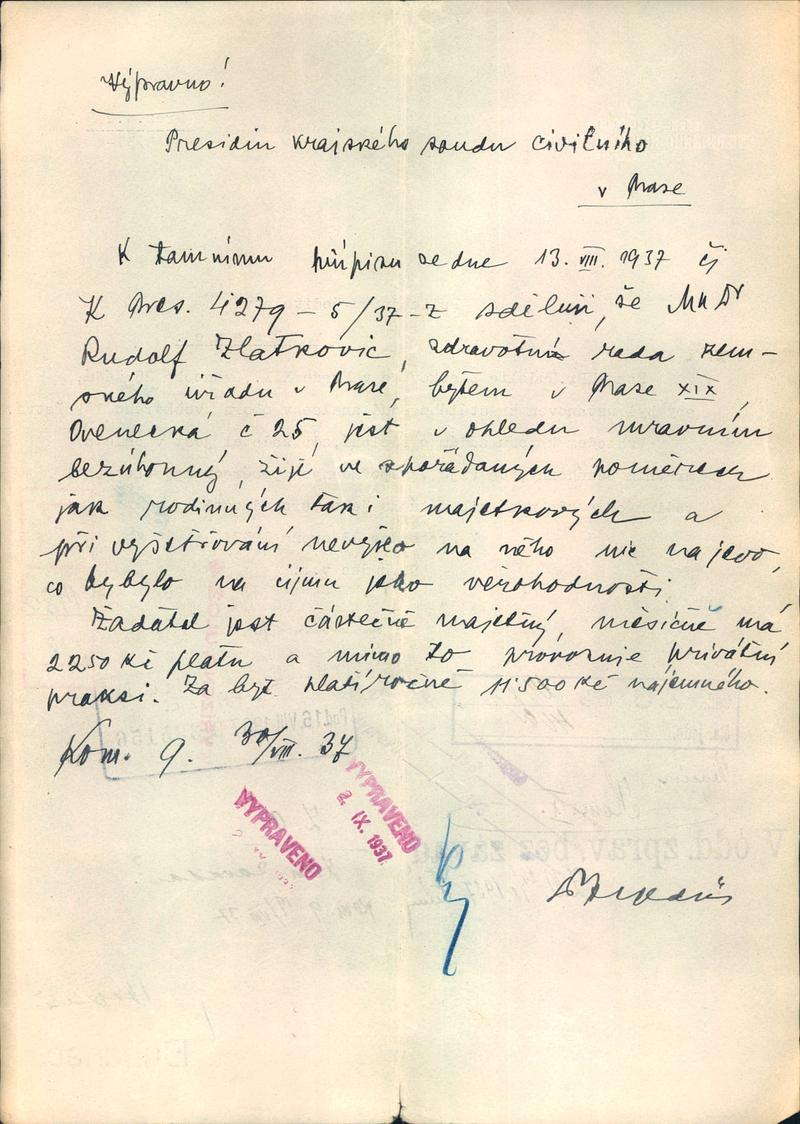 Výpravno!
Presidiu krajského soudu civilního
v Praze
K tamnímu přípisu ze dne 13. VIII. 1937 čj
K Pres. 4279 – 5/37 – Z sděluji, že MUDr
Rudolf Zlatkovic, zdravotní rada zem-
ského úřadu v Praze, bytem v Praze XIX,
Ovenecká č 25, jest v ohledu mravním
bezúhonný, žije ve spořádaných poměrech
jak rodinných tak i majetkových a
při vyšetřování nevyšlo na něho nic na jevo,
co by bylo na újmu jeho věrohodnosti.
Žadatel jest částečně majetný, měsíčně má
2250 Kč platu a mimo to provozuje privátní
praksi. Za byt platí ročně 11.500 Kč nájemného.
Kom. 9. 30/VIII. 37
VYPRAVENO
2. IX. 1937
VYPRAVENO